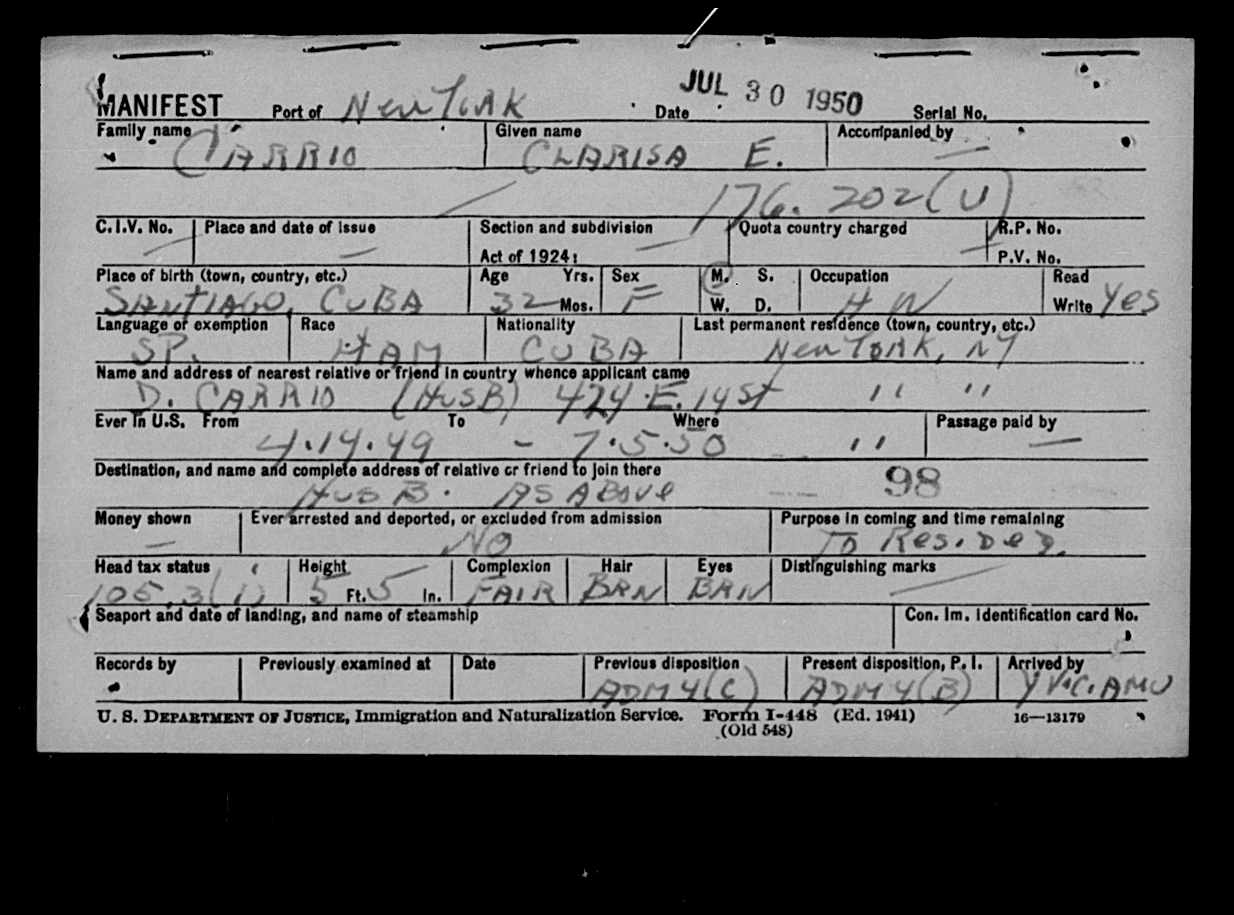 MANIFEST Port of New York Date JUL 30 1950 Serial No.
Family name Given name Accompanied by
CARRIO CLARISA E. —
176. 202(U)
C.I.V. No. Place and date of issue Section and subdivision Quota country charged R.P. No.
— — Act of 1924: — — P.V. No.
Place of birth (town, country, etc.) Age Yrs. Sex M. S. Occupation Read
SANTIAGO, CUBA 32 Mos. F W. D. H W Write Yes
Language or exemption Race Nationality Last permanent residence (town, country, etc.)
SP. CUBA New York, NY
Name and address of nearest relative or friend in country whence applicant came
D. CARRIO (HUSB) 424 E. 14 St " "
Ever in U.S. From To Where Passage paid by
4.14.49 - 7.5.50 " —
Destination, and name and complete address of relative or friend to join there
HUSB. AS ABove 98
Money shown Ever arrested and deported, or excluded from admission Purpose in coming and time remaining
— NO To Res.
Head tax status Height Complexion Hair Eyes Distinguishing marks
105.3(1) 5 Ft. 5 In. FAIR BRN BRN —
Seaport and date of landing, and name of steamship Con. Im. Identification card No.
Records by Previously examined at Date Previous disposition Present disposition, P. I. Arrived by
ADM 4(C) ADM 4(B)
U. S. DEPARTMENT OF JUSTICE, Immigration and Naturalization Service. Form I-448 (Ed. 1941) 16—13179
(Old 548)